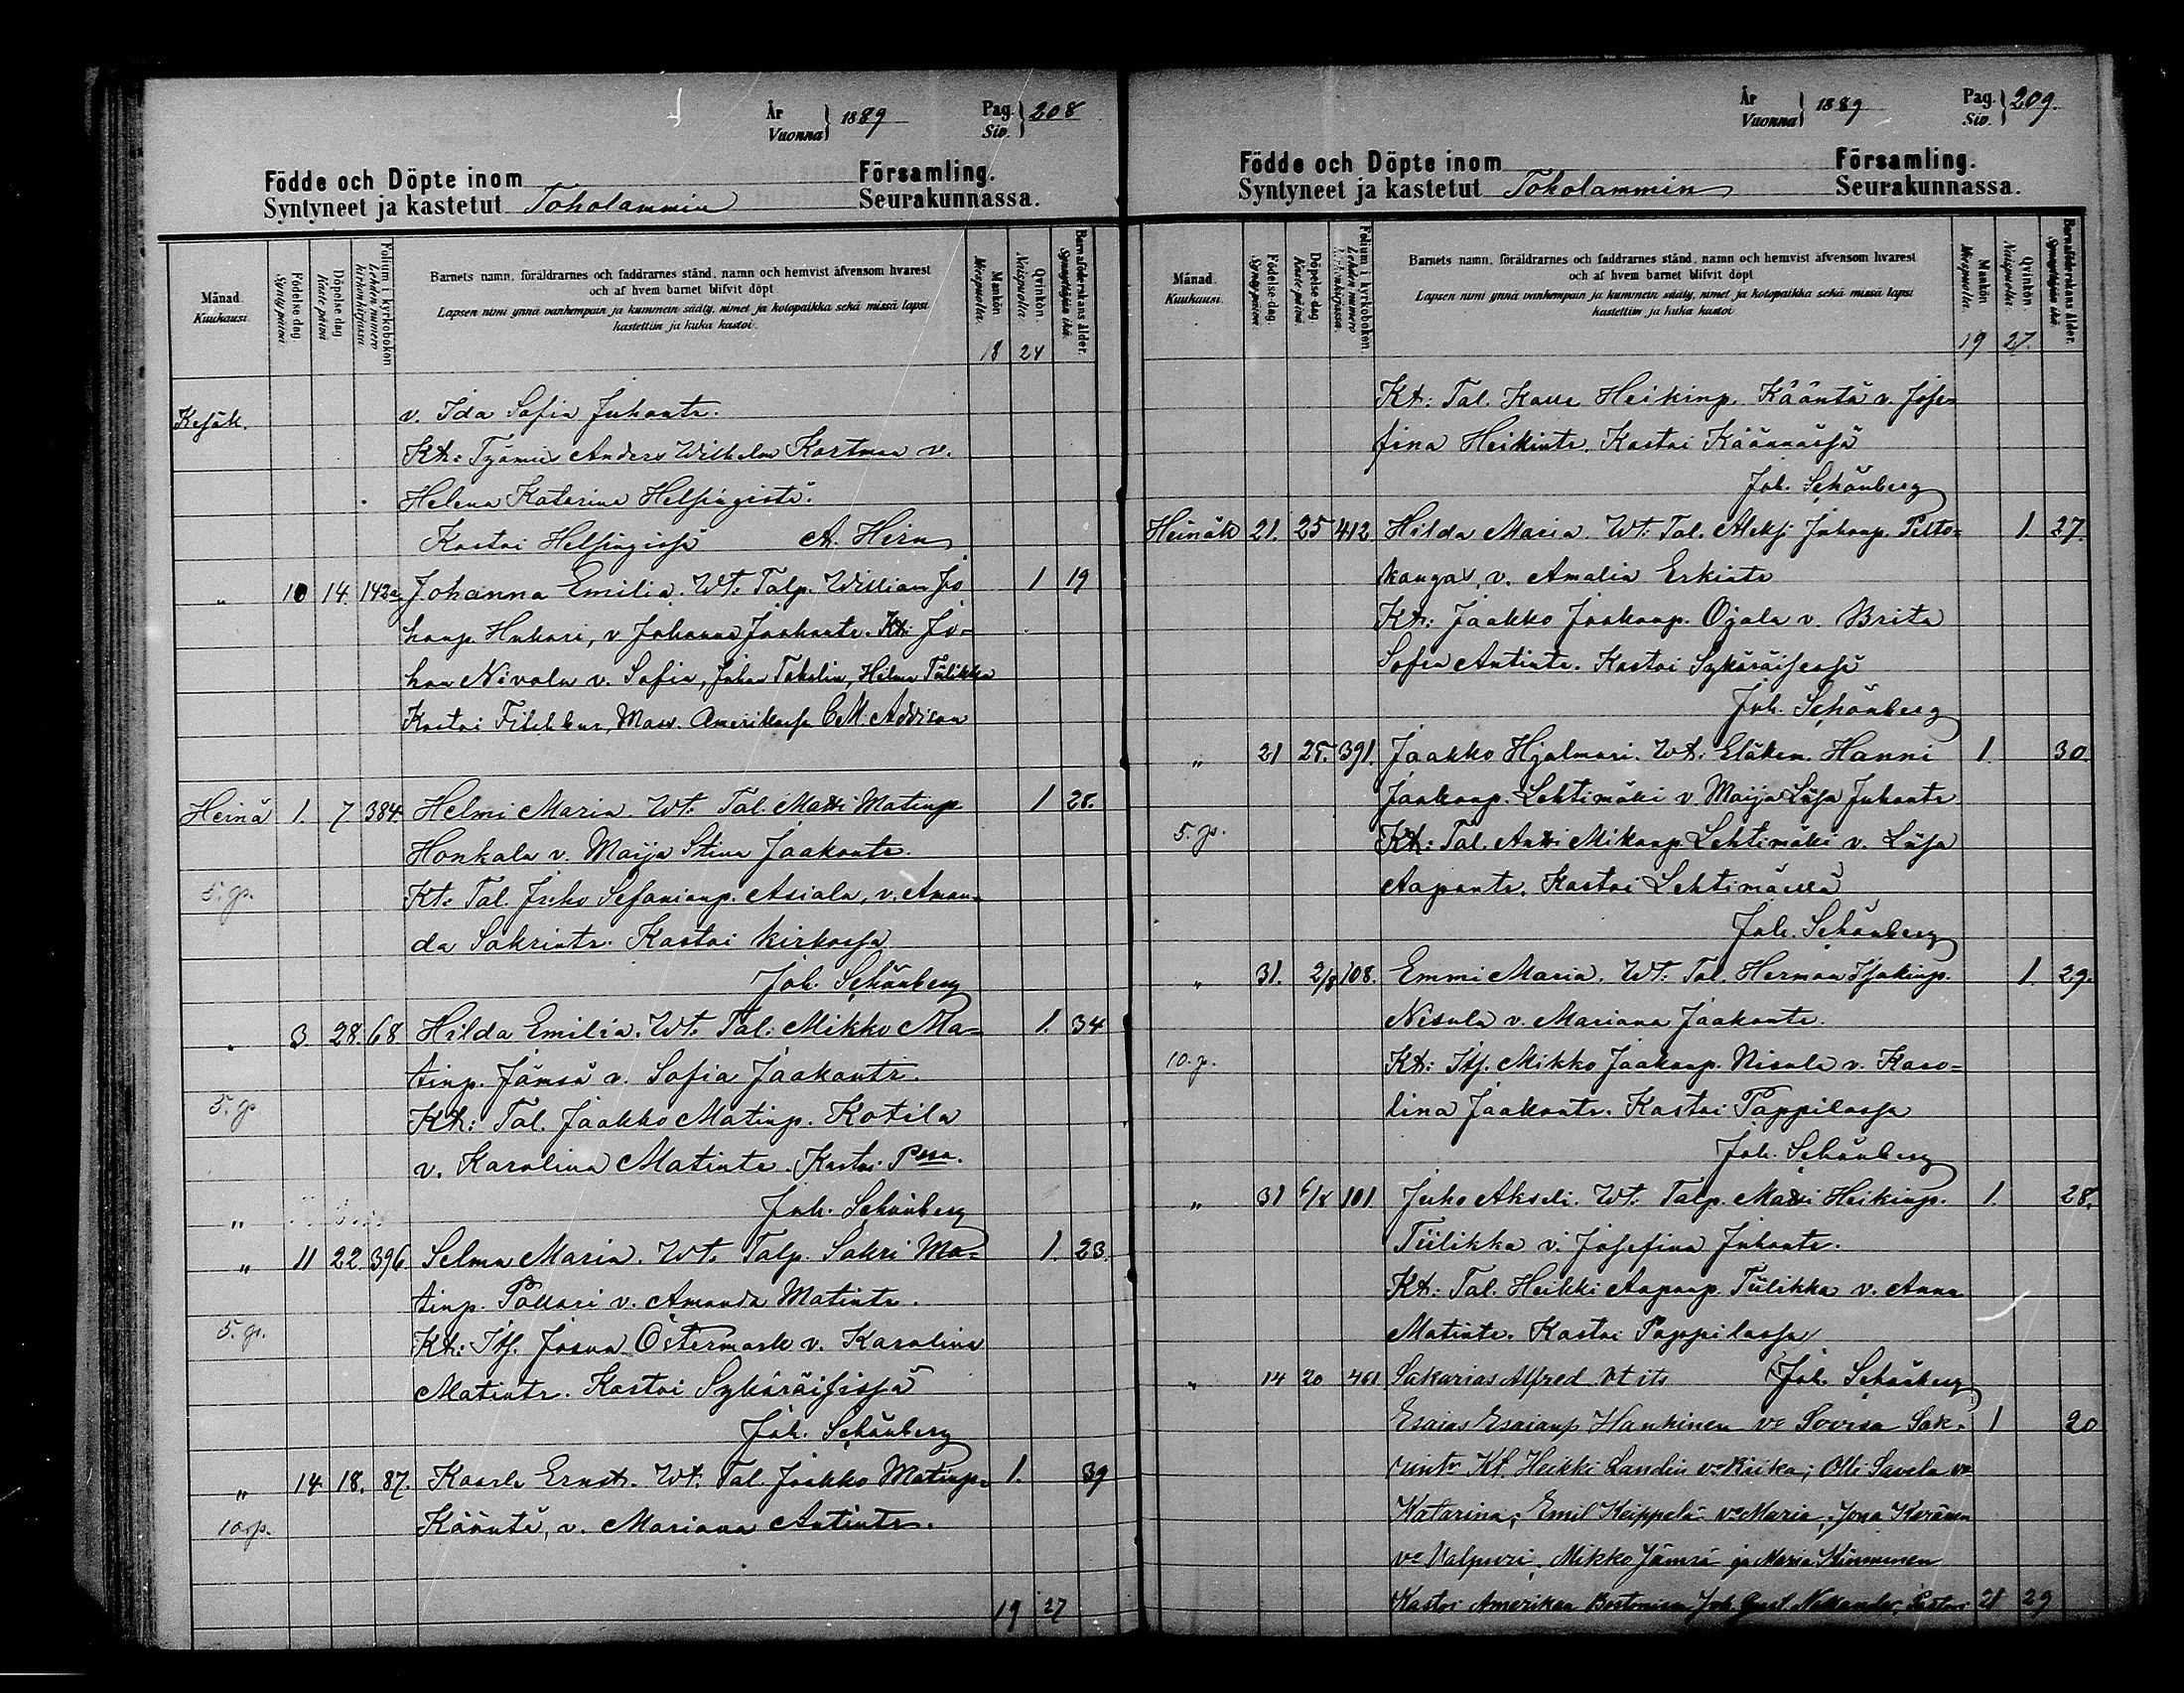 År
Vuonna } 1889
Pag.
Siv. } 208
Födde och Döpte inom Församling.
Syntyneet ja kastetut Toholammin Seurakunnassa.
Månad.
Kuukausi.
Födelse-dag.
Syntypäivä
Döpelse-dag.
Kaste päivä
Folium i kyrkoboken
Lehden numero kirkonkirjassa
Barnets namn, föräldrarnes och faddrarnes stånd, namn och hemvist äfvensom hvarest
och af hvem barnet blifvit döpt
Lapsen nimi ynnä vanhempain ja kummein sääty, nimet ja kotopaikka sekä missä lapsi
kastettiin ja kuka kastoi.
Mankön
Miespuolia.
Qvinkön.
Naispuolia.
Barnaföderskans ålder.
Synnyttäjän ikä.
18 24
Kesäk. v. Ida Sofia Juhontr.
Kt: Työmies Anders Wilhelm Kortman v.
Helena Katarina Helsingistä.
Kastoi Helsingissä A. Hirn
„ 10 14. 142a Johanna Emilia. Wt. Talp. William Jo
hanp. Huhari, v Johanna Jaakontr. Kt: Jo=
han Nivala v. Sofia, Johan Tokolin, Hilma Tiilikka
Kastoi Fitchbur, Mass. Amerikassa C M. Addison
Heinä 1. 7 384. Helmi Maria. Wt. Tal. Matti Matinp. 1 28.
Honkala v. Maija Stina Jaakontr.
5. p. Kt: Tal. Juho Sefanianp. Asiala, v. Aman=
da Sakrintr. Kastoi kirkossa
Joh. Schönberg
„ 3. 28. 68 Hilda Emilia. Wt. Tal. Mikko Ma= 1. 34
tinp. Jämsä v. Sofia Jaakontr.
5. p. Kt: Tal. Jaakko Matinp. Kotila
v. Karolina Matintr. Kastoi Pssa.
„ Joh. Schönberg
„ 11 22. 396 Selma Maria. Wt. Talp. Sakri Ma= 1. 23.
tinp. Pollari v. Amanda Matintr.
5. p. Kt: Its. Josua Östermark v. Karolina
Matintr. Kastoi Sykäräisissä
Joh. Schönberg
„ 14 18. 87. Kaarle Ernst. Wt. Tal. Jaakko Matinp. 1. 39
10 p. Kääntä, v. Mariana Antintr.
19 27
År
Vuonna } 1889
Pag.
Siv. } 209.
Födde och Döpte inom Församling.
Syntyneet ja kastetut Toholammin Seurakunnassa.
Månad.
Kuukausi.
Födelse-dag.
Syntypäivä
Döpelse-dag.
Kaste päivä
Folium i kyrkoboken.
Lehden numero kirkonkirjassa
Barnets namn, föräldrarnes och faddrarnes stånd, namn och hemvist äfvensom hvarest
och af hvem barnet blifvit döpt
Lapsen nimi ynnä vanhempain ja kummein sääty, nimet ja kotopaikka sekä missä lapsi
kastettiin ja kuka kastoi
Mankön
Miespuolia.
Qvinkön.
Naispuolia.
Barnaföderskans ålder.
Synnyttäjän ikä.
19 27.
Kt: Tal. Kalle Heikinp. Kääntä v. Jose=
fina Heikintr. Kastoi Käännässä
Joh. Schönberg
Heinäk 21. 25 412 Hilda Maria. Wt: Tal. Aleks. Juhonp. Pelto= 1. 27.
kangas, v. Amalia Erkintr
Kt: Jaakko Jaakonp. Ojala v. Brita
Sofia Antintr. Kastoi Sykäräisessä
Joh. Schönberg
„ 21 25. 391. Jaakko Hjalmari. Wt: Eläkem. Hanni 1. 30.
Jaakonp. Lehtimäki v. Maija Liisa Juhontr
5. p. Kt: Tal. Antti Mikonp. Lehtimäki v. Liisa
Aapontr. Kastoi Lehtimäellä
Joh. Schönberg
„ 31. 2/8 108. Emmi Maria. Wt: Tal. Herman Isakinp. 1. 29.
Nisula v. Mariana Jaakontr.
10. p. Kt: Its. Mikko Jaakonp. Nisula v. Karo=
lina Jaakontr. Kastoi Pappilassa
Joh. Schönberg
„ 31 6/8 101. Juho Akseli. Wt: Talp. Matti Heikinp. 1. 28.
Tiilikka v. Josefina Juhontr.
Kt: Tal. Heikki Aaponp. Tiilikka v. Anna
Matintr. Kastoi Pappilassa
„ 14 20 461 Sakarias Alfred Vt its Joh. Schönberg
Esaias Esaianp Hankinen vo Lovisa Sak- 1 20
rintr Kt. Heikki Landin vo Riika; Olli Savela vo
Katarina; Emil Keippelä vo Maria, Jona Keränen
vo Valpuri, Mikko Jämsä ja Maria Kinnunen
Kastoi Amerikan Bostonissa Joh. Gust. Nikander, Pastori 21 29